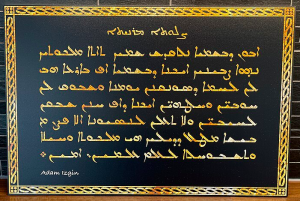 ܨܠܘܬܐ ܡܪܢܝܬܐ
ܐܒܘܢ ܕܒܫܡܝܐ ܢܬܩܕܫ ܫܡܟ ܬܐܬܐ ܡܠܟܘܬܟ
ܢܗܘܐ ܨܒܝܢܟ ܐܝܟܢܐ ܕܒܫܡܝܐ ܐܦ ܒܐܪܥܐ ܗܒ
ܠܢ ܠܚܡܐ ܕܣܘܢܩܢܢ ܝܘܡܢܐ ܘܫܒܘܩ ܠܢ
ܚܘܒܝܢ ܘܚܛܗܝܢ ܐܝܟܢܐ ܕܐܦ ܚܢܢ ܫܒܩܢ
ܠܚܝܒܝܢ ܘܠܐ ܬܥܠܢ ܠܢܣܝܘܢܐ ܐܠܐ ܦܨܢ ܡܢ
ܒܝܫܐ ܡܛܠ ܕܕܝܠܟ ܗܝ ܡܠܟܘܬܐ ܘܚܝܠܐ
ܘܬܫܒܘܚܬܐ ܠܥܠܡ ܥܠܡܝܢ܆ ܐܡܝܢ ܀
Adam Izgin